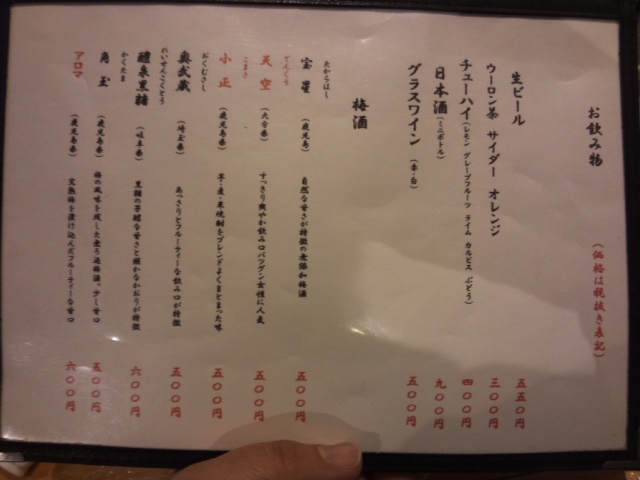 お飲み物
(価格は税抜き表記)
生ビール 五五〇円
ウーロン茶 サイダー オレンジ 三〇〇円
チューハイ(レモン グレープフルーツ ライム カルピス ぶどう) 四〇〇円
日本酒(ミニボトル) 九〇〇円
グラスワイン (赤・白) 五〇〇円
梅酒
たからほし
宝星 (鹿児島) 自然な甘さが特徴の無添加梅酒 五〇〇円
てんくう
天空 (大分県) すっきり爽やか飲み口バツグン女性に人気 五〇〇円
こまさ
小正 (鹿児島県) 芋・麦・米焼酎をブレンドよくまとまった味 五〇〇円
おくむさし
奥武蔵 (埼玉県) あっさりとフルーティーな飲み口が特徴 五〇〇円
れいせんこくとう
醴泉黒糖 (岐阜県) 黒糖の芳醇な甘さと穏かなかおりが特徴 六〇〇円
かくたま
角玉 (鹿児島県) 梅の風味を残した荒ろ過梅酒。少々甘口 五〇〇円
アロマ (鹿児島県) 完熟梅を漬け込んだフルーティーな甘口 六〇〇円